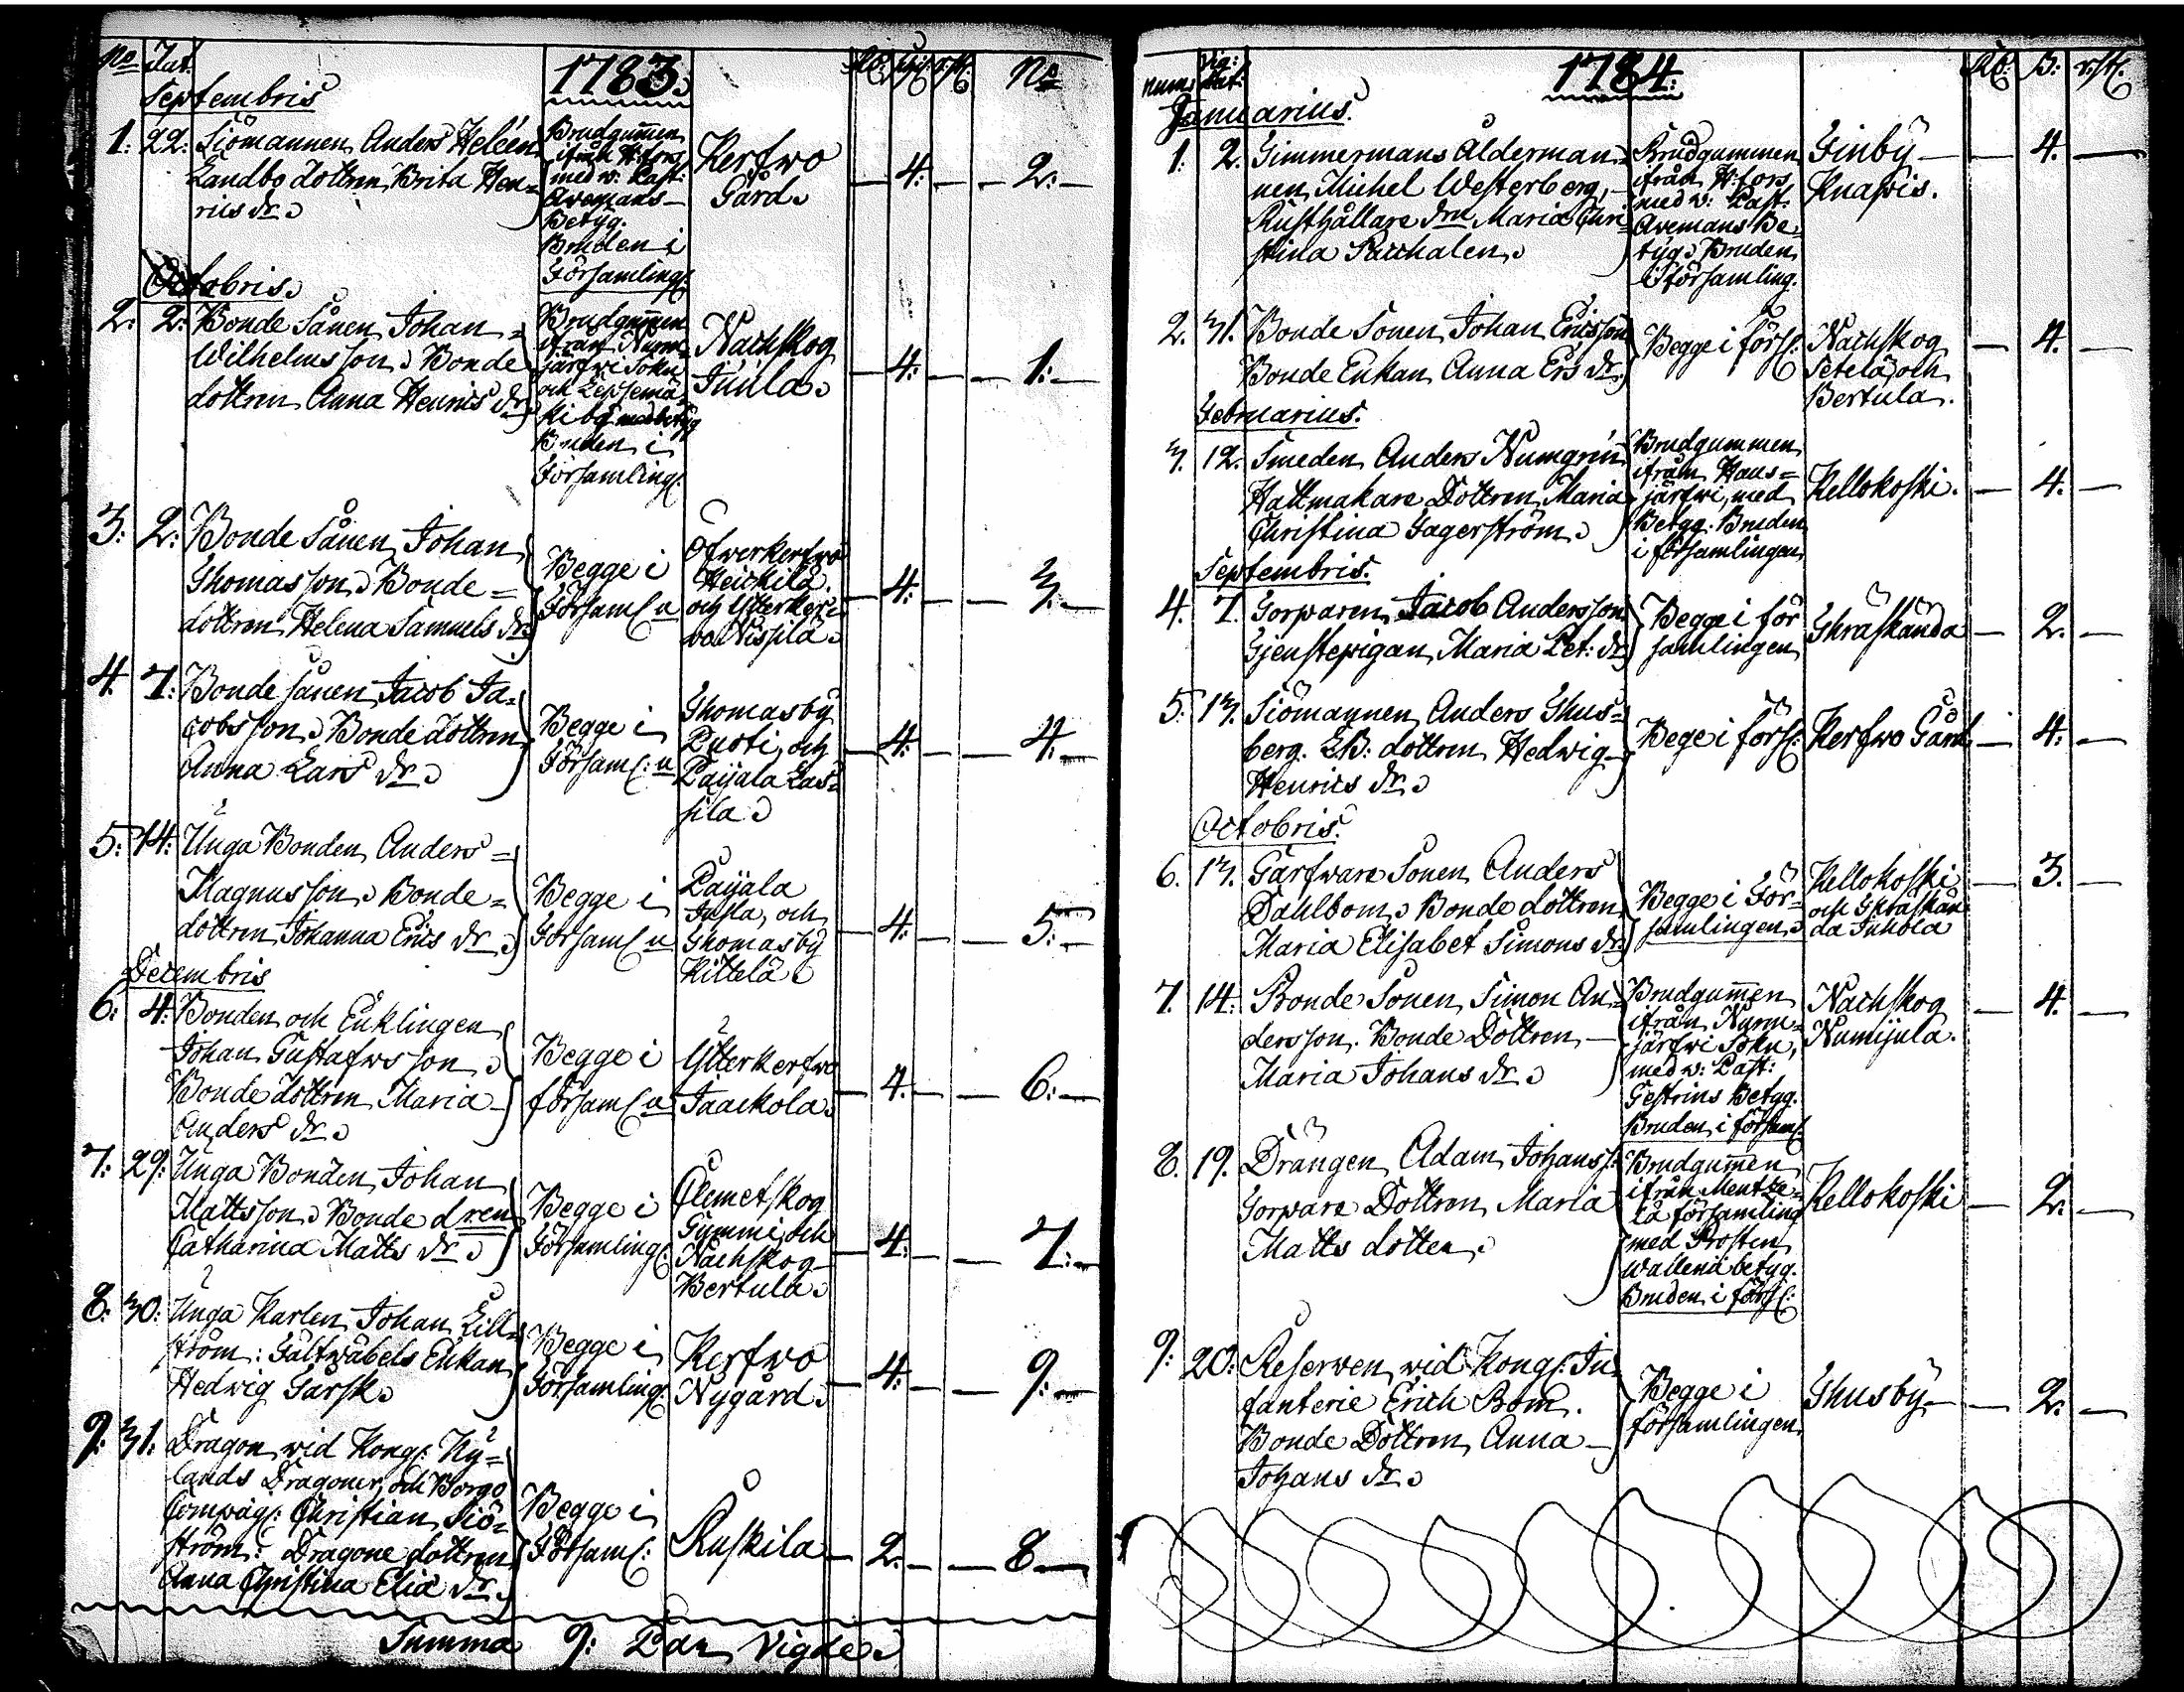 No Dat. 1783. No
Septembris
1: 22: Siömannen Anders Heléen
Landbo dottren Brita Hen=
rics dr.
Brudgum̄en
ifrån H:fors
med w: Past:
Avemans
Betyg.
Bruden i
Församling:
Kerfwo
Gård.
4: 2:
Octobris.
2: 2: Bonde Sånen Johan
Wilhelmsson. Bonde
dottren Anna Henrics dr.
Brudgum̄en
ifrån Nurm=
järfwi Sokn
och Lepsemä
bÿ med betyg
Bruden i
Församling:
Nachskog
Juula.
4: 1:
3: 2: Bonde Sånen Johan
Thomasson. Bonde=
dottren Helena Samuels dr.
Begge i
Församl:n
Öfwerkerfwo
Heickilä.
och Ytterkerf=
wo Nissilä.
4: 3.
4. 7: Bonde sånen Jacob Ja=
cobsson. Bonde dottren
Anna Lars dr.
Begge i
Församl:n
Thomasby
Puoti, och
Paijala Las=
sila.
4: 4:
5: 14: Unga Bonden Anders=
Magnusson. Bonde=
dottren Johanna Erics dr.
Begge i
Församl:n
Paijala
Jusla, och
Thomasby
Kittelä.
4: 5:
Decembris
6: 4: Bonden och Enklingen
Johan Gustafwsson.
Bonde dottren Maria
Anders dr.
Begge i
församl:n
Ytterkerfwo
Jaackola.
4. 6:
7: 29: Unga Bonden Johan
Mattsson. Bonde dren
Catharina Matts dr.
Begge i
Församling:
Clemetskog
Tummi, och
Nachskog
Bertula.
4: 7:
8: 30: Unga Karlen Johan Lill=
ström: Fältwäbels Enkan
Hedwig Garsk.
Begge i
Församling:
Kerfwo
Nygård.
4: 9:
9: 31: Dragon wid Kongl: Ny=
lands Dragoner, och Borgo
Compagl: Christian Siö=
ström: Dragone dottren
Anna Christina Elia dr.
Begge i
Församl:
Ruskila
2. 8
Summa 9: Par Vigde.
num: Vig: dat. 1784. B:
Januarius.
1. 2. Timmermans Ålderman=
nen Michel Westerberg,
Rusthållare drn Maria Chri=
stina Paichalen.
Brudgummen
ifrån H:fors
med w: Past:
Avemans Be=
tyg. Bruden
i församling.
Finby
Knapis.
4.
2. 31. Bonde Sonen Johan Ericsson
Bonde Enkan Anna Ers dr.
Begge i förs:
Nachskog
Setelä, och
Bertula.
4.
Februarius.
3. 12. Smeden Anders Numgren
Hattmakare Dottren Maria
Christina Fagerström.
Brudgummen
ifrån Haus=
järfwi, med
Betyg. Bruden
i församlingen
Kellokoski.
4.
Septembris.
4. 7. Torparen Jacob Andersson
Tjenstepigan Maria Pet: dr.
Begge i för
samlingen
Thräskända
2.
5: 13. Siömannen Anders Thus=
berg. LB: dottren Hedwig
Henrics dr.
Bege i förs:
Kerfwo Gård
4:
Octobris.
6. 13. Garfware Sonen Anders
Dahlbom. Bonde dottren
Maria Elisabet Simons dr.
Begge i För=
samlingen.
Kellokoski
och Thräskän
da Juhola
3.
7. 14: Bonde Sonen Simon An=
dersson. Bonde Dottren
Maria Johans dr.
Brudgum̄en
ifrån Nurm=
järfwi Sokn,
med w: Past:
Gestrins Betyg.
Bruden i församl:
Nachskog
Numijula.
4.
8. 19. Drängen Adam Johanss:
Torpare Dottren Maria
Matts dotter.
Brudgum̄en
ifrån Mentze=
lä församling
med Prosten
Wallenii betyg.
Bruden i förs:
Kellokoski
2.
9: 20: Reserwen wid Kongl: In
fanterie Erich Bom.
Bonde Dottren Anna
Johans dr.
Begge i
församlingen
Thusby
2.